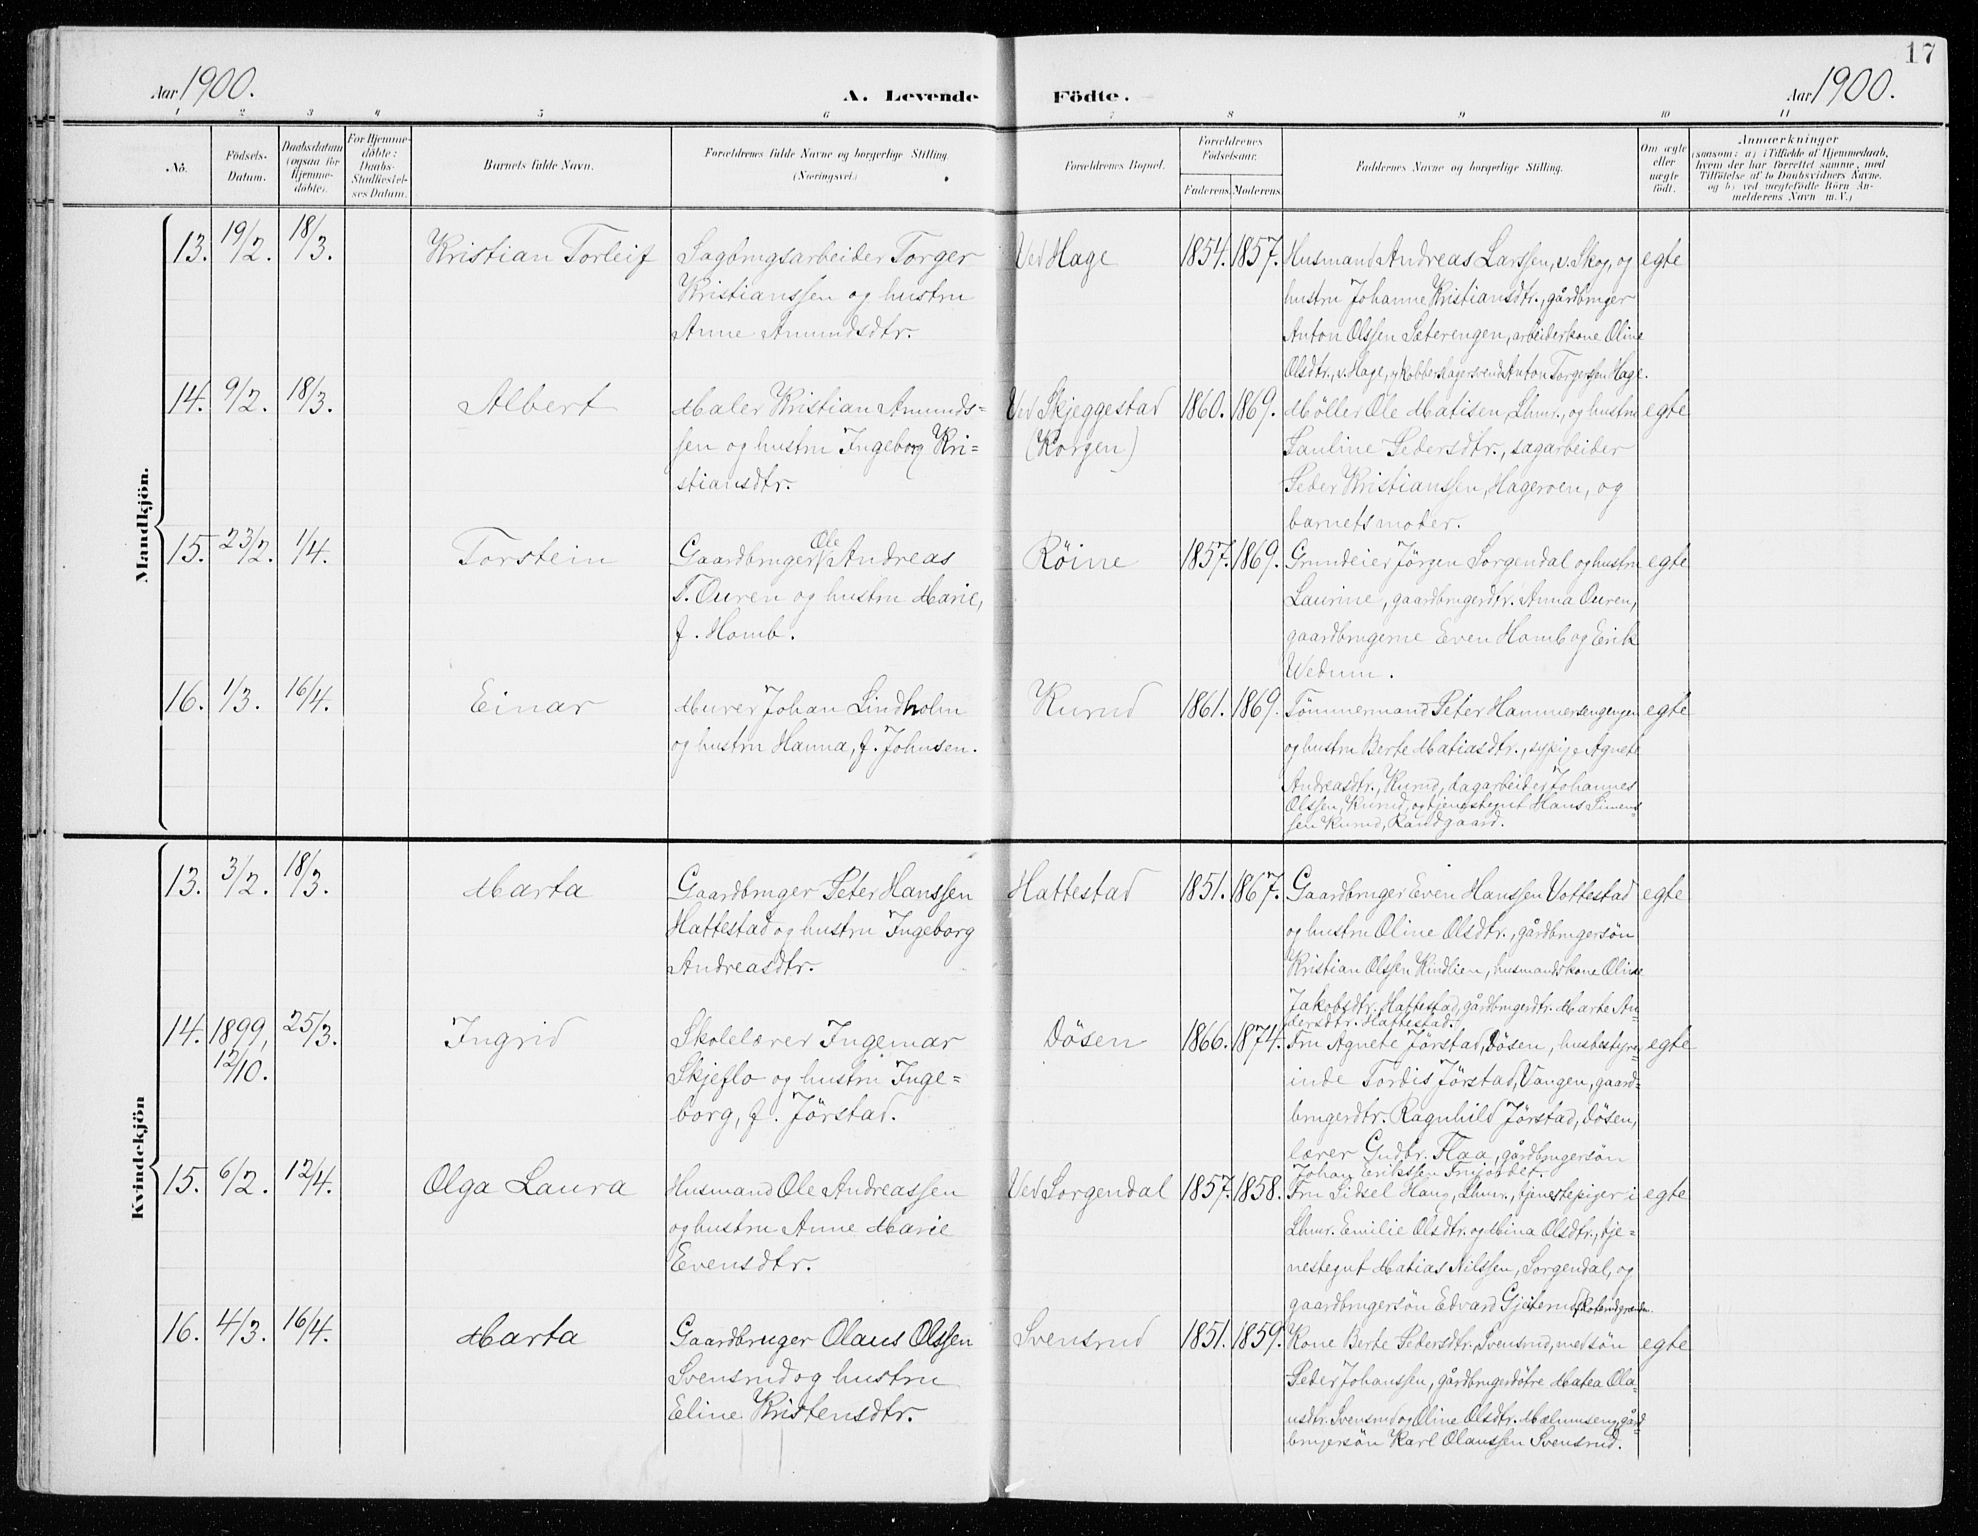 17
Aar 1900.
A. Levende Födte.
Aar 1900.
1 2 3 4 5 6 7 8 9 10 11
No.
Födsels-
Datum.
Daabsdatum
(ogsaa for
Hjemme-
döbte).
For Hjemme-
döbte:
Daabs-
Stadfæstel-
ses Datum.
Barnets fulde Navn.
Forældrenes fulde Navne og borgerlige Stilling.
(Næringsvei.)
Forældrenes Bopæl.
Forældrenes
Födselsaar.
Faderens. Moderens.
Faddernes Navne og borgerlige Stilling.
Om ægte
eller
uægte
födt.
Anmærkninger
(saasom: a) i Tilfælde af Hjemmedaab,
hvem der har forrettet samme, med
Tilföielse af to Daabsvidners Navne.
og b) ved uægtefödte Börn An-
melderens Navn m.V.)
Mandkjön.
13. 19/2. 18/3. Kristian Torleif
Sagbrugsarbeider Torger
Kristianssen og hustru
Anne Amundsdtr.
Ved Hage 1854. 1857.
Husmand Andreas Larssen, v. Skog, og
hustru Johanne Kristiansdtr., gårdbruger
Anton Olssen Sæterengen, arbeiderkone Oline
Olsdtr., v. Hage, kobberslagersvend Anton Torgersen Hage.
egte
14. 9/2. 18/3. Albert
Maler Kristian Amunds-
sen og hustru Ingeborg Kri-
stiansdtr.
Ved Skjeggestad
(Korgen)
1860. 1869.
Möller Ole Matisen, Lhmr., og hustru
Pauline Pedersdtr., sagarbeider
Peder Kristianssen, Hageroen, og
barnets moder.
egte
15. 23/2. 1/4. Torstein
Gaardbruger Ole Andreas
T. Ouren og hustru Marie,
f. Homb.
Röine 1857. 1869.
Grundeier Jörgen Sorgendal og hustru
Laurine, gaardbrugerdtr. Anna Ouren,
gaardbrugerne Even Homb og Erik
Wedum.
egte
16. 1/3. 16/4. Einar
Murer Johan Lindholm
og hustru Hanna, f. Johnsen.
Kurud 1861. 1869.
Tömmermand Peter Hammersengengen
og hustru Berte Matiasdtr., sypige Agnete
Andreasdtr., Kurud, dagarbeider Johannes
Olssen, Kurud, og tjenestegut Hans Simens-
sen Kurud, Randgaard.
egte
Kvindekjön
13. 3/2. 18/3. Marta
Gaardbruger Peter Hanssen
Hattestad og hustru Ingeborg
Andreasdtr.
Hattestad 1851. 1867.
Gaardbruger Even Hanssen Vottestad
og hustru Oline Olsdtr., gårdbrugersön
Kristian Olssen Kindlien, husmandskone Oline
Jakobsdtr. Hattestad, gårdbrugerdtr. Marte An-
dersdtr. Hattestad.
egte
14. 1899, 12/10. 25/3. Ingrid
Skolelærer Ingemar
Skjeflo og hustru Inge-
borg, f. Jörstad.
Dösen 1866. 1874.
Fru Agnete Jörstad, Dösen, husbestyrer-
inde Tordis Jörstad, Vangen, gaard-
brugerdtr. Ragnhild Jörstad, Dösen,
lærer Gudbr. Flaa, gårdbrugersön
Johan Erikssen
egte
15. 6/2. 12/4. Olga Laura
Husmand Ole Andreassen
og hustru Anne Marie
Evensdtr.
Ved Sorgendal 1857. 1858.
Fru Sidsel Haug, Lhmr., tjenestepiger i
Lhmr. Emilie Olsdtr. og Mina Olsdtr., tje-
nestegut Matias Nilssen, Sorgendal, og
gaardbrugersön Edvard
egte
16. 4/3. 16/4. Marta
Gaardbruger Olaus Olssen
Svensrud og hustru
Eline Kristensdtr.
Svensrud 1851. 1859.
Kone Berte Pedersdtr. Svensrud, med sön
Peder Johanssen, gårdbrugerdötre Matea Ola-
usdtr. Svensrud og Oline Olsdtr. Mælumseng, gård-
brugersön Karl Olaussen Svensrud.
egte